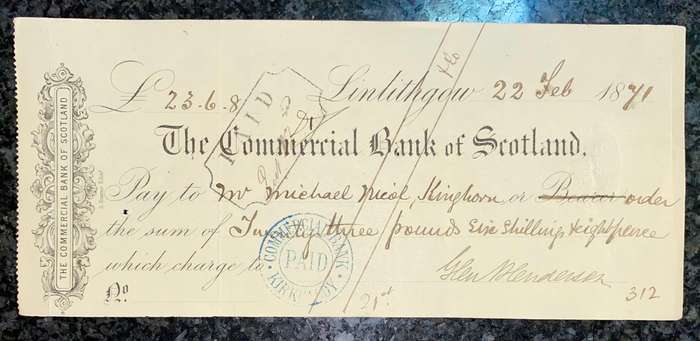 THE COMMERCIAL BANK OF SCOTLAND
£ 23-6-8 Linlithgow 22 Feb 1871
PAID
The Commercial Bank of Scotland.
Pay to Mr Michael Nicol, Kinghorn or Bearer order
the sum of Twenty three pounds Six Shillings & eight pence
which charge to
COMMERCIAL BANK
PAID
KIRKCALDY
Glen & Henderson
No.
21st
312